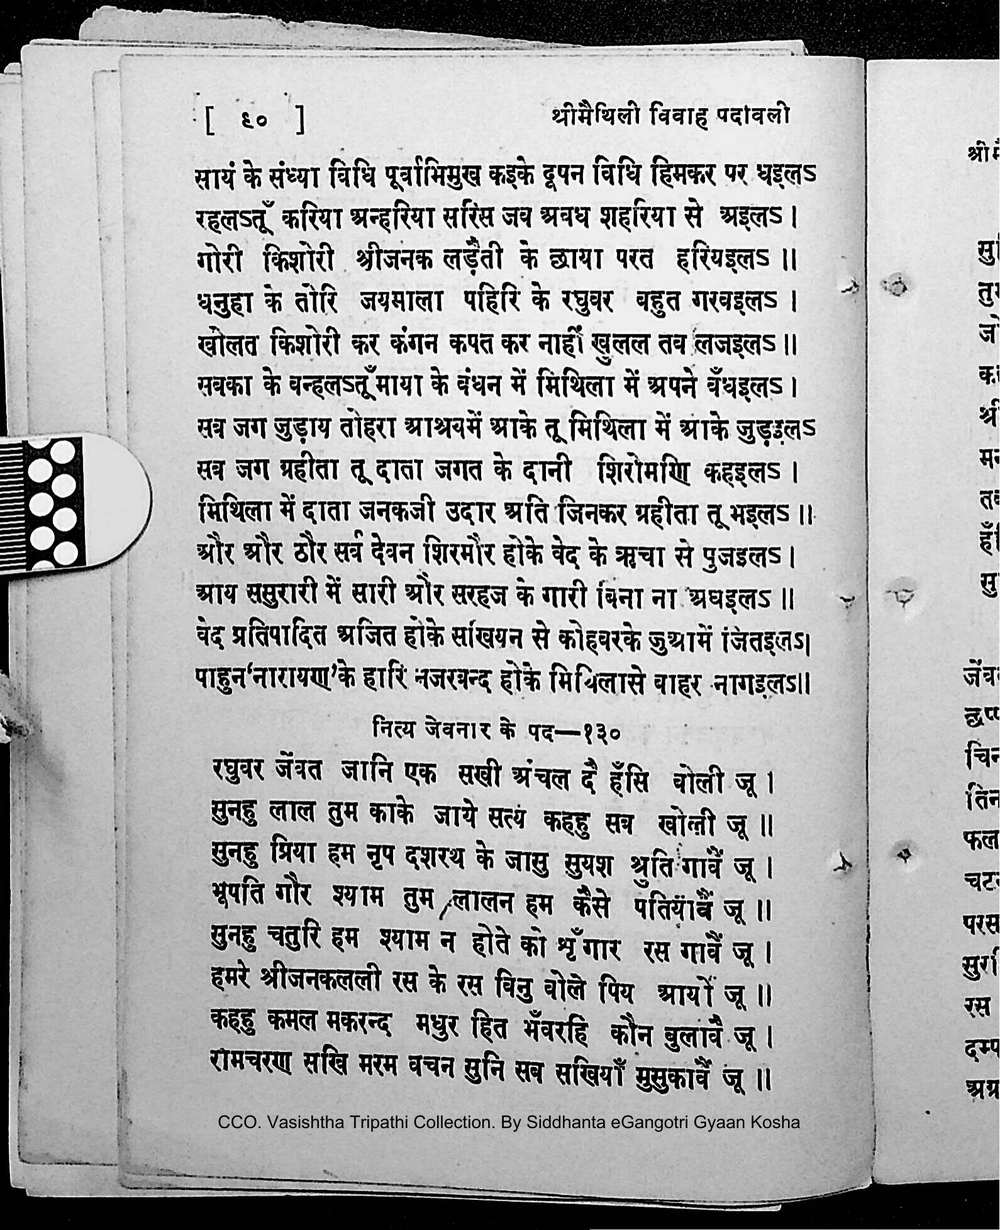 [ ६० ] श्रीमैथिली विवाह पदावली
सायं के संध्या विधि पूर्वाभिमुख कइके दूपन विधि हिमकर पर धइलऽ
रहलऽतूँ करिया अन्हरिया सरिस जब अवध शहरिया से अइलऽ ।
गोरी किशोरी श्रीजनक लड़ैती के छाया परत हरियइलऽ ॥
धनुहा के तोरि जयमाला पहिरि के रघुवर बहुत गरवइलऽ ।
खोलत किशोरी कर कंगन कपत कर नाहीं खुलल तब लजइलऽ ॥
सबका के बन्हलऽतूँ माया के बंधन में मिथिला में अपने बँधइलऽ ।
सब जग जुड़ाय तोहरा आश्रवमें आके तू मिथिला में आके जुड़इलऽ
सब जग ग्रहीता तू दाता जगत के दानी शिरोमणि कहइलऽ ।
मिथिला में दाता जनकजी उदार अति जिनकर ग्रहीता तू भइलऽ ॥
और और ठौर सर्व देवन शिरमौर होके वेद के ऋचा से पुजइलऽ ।
आय ससुरारी में सारी और सरहज के गारी बिना ना अघइलऽ ॥
वेद प्रतिपादित अजित होके सखियन से कोहबरके जुआमें जितइलऽ।
पाहुन‘नारायण’के हारि नजरबन्द होके मिथिलासे बाहर नागइलऽ॥
नित्य जेवनार के पद—१३०
रघुवर जेंवत जानि एक सखी अंचल दै हँसि बोली जू ।
सुनहु लाल तुम काके जाये सत्य कहहु सब खोली जू ॥
सुनहु प्रिया हम नृप दशरथ के जासु सुयश श्रुति गावैं जू ।
भूपति गौर श्याम तुम लालन हम कैसे पतियावैं जू ॥
सुनहु चतुरि हम श्याम न होते को शृँगार रस गावैं जू ।
हमरे श्रीजनकलली रस के रस विनु बोले पिय आयों जू ॥
कहहु कमल मकरन्द मधुर हित भँवरहि कौन बुलावै जू ।
रामचरण सखि मरम वचन सुनि सब सखियाँ मुसुकावैं जू ॥
CCO. Vasishtha Tripathi Collection. By Siddhanta eGangotri Gyaan Kosha